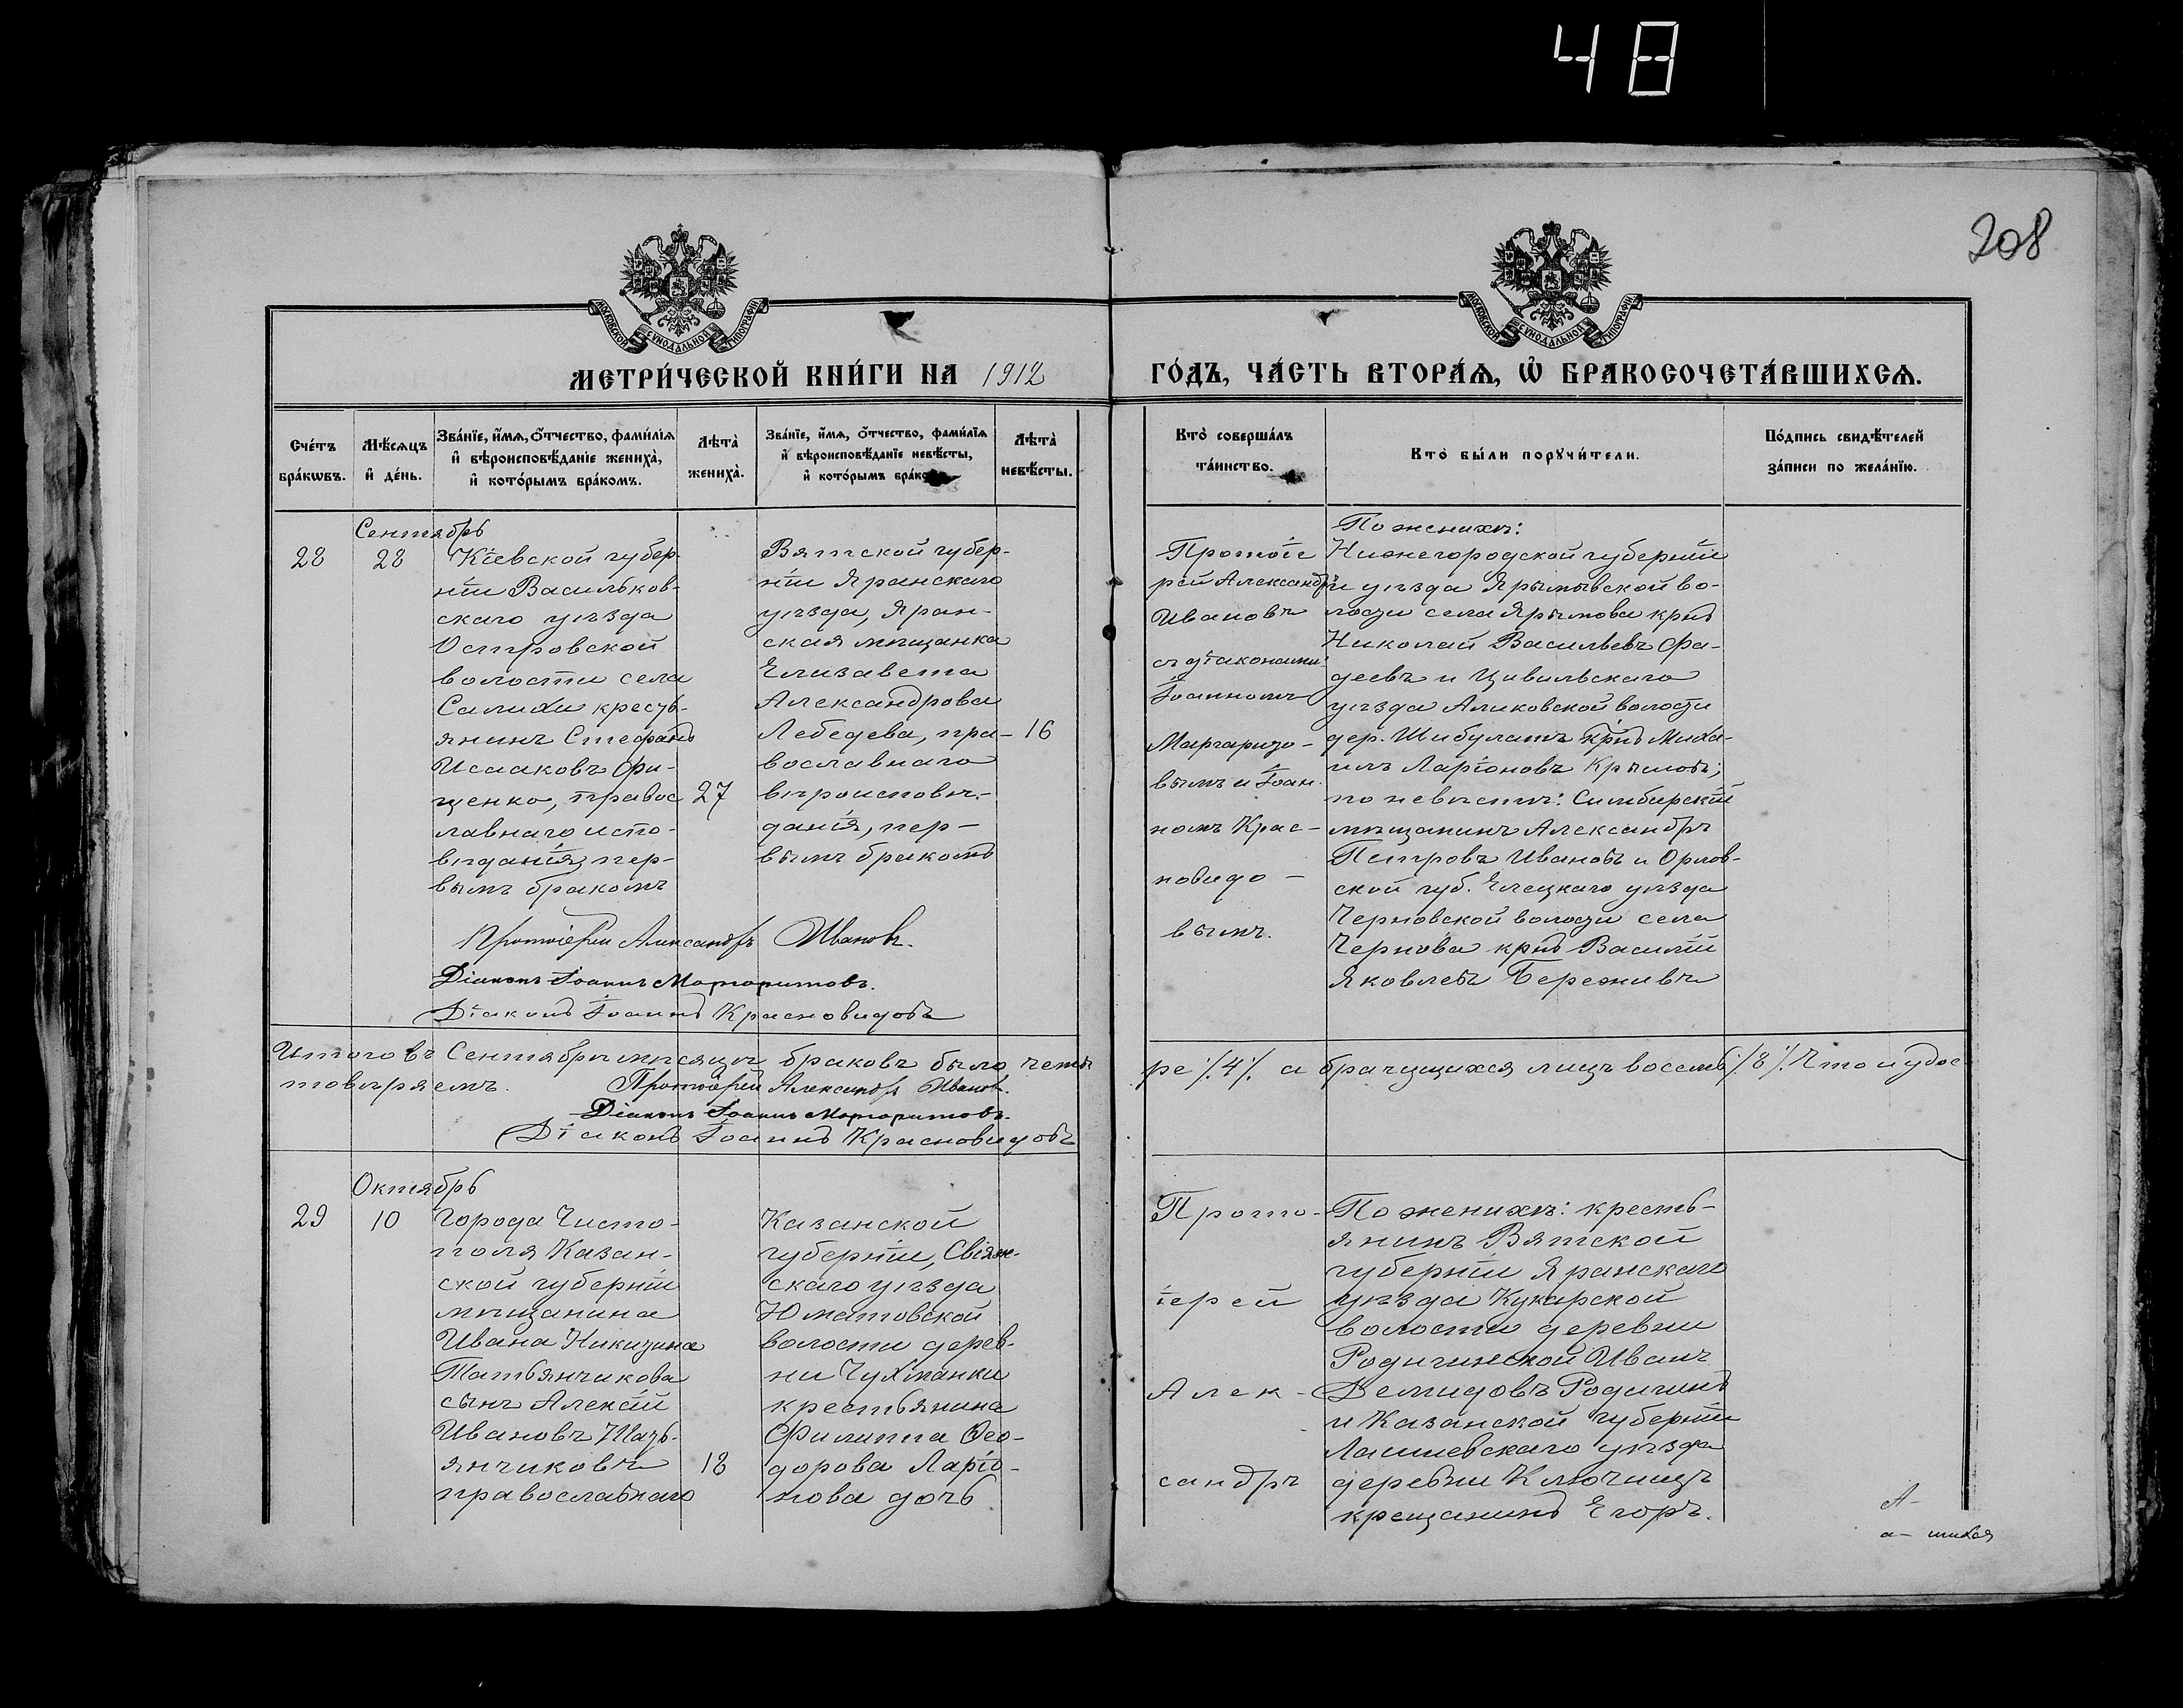 48
208
МОСКОВСКОЙ СѴНОДАЛЬНОЙ ТИПОГРАФІИ
МОСКОВСКОЙ СѴНОДАЛЬНОЙ ТИПОГРАФІИ
МЕТРИ́ЧЕСКОЙ КНИ́ГИ НА 1912 ГО́ДЪ, ЧА́СТЬ ВТОРА́Ѧ, Ѡ БРАКОСОЧЕТА́ВШИХСѦ.
Сче́тъ бра́кѡвъ.
Мѣ́сяцъ и де́нь.
Зва́нїе, и́мѧ, ѻ́тчество, фами́лїѧ
и вѣроисповѣ́данїе жениха̀,
и кото́рымъ бра́комъ.
Лѣта̀ жениха̀.
Зва́нїе, и́мѧ, ѻ́тчество, фами́лїѧ
и вѣроисповѣ́данїе невѣ́сты,
и кото́рымъ бра́ко
Лѣта̀ невѣ́сты.
Кто̀ соверша́лъ
та́инство.
Кто̀ бы́ли порꙋчи́тели.
По́дпись свидѣ́телей
за́писи по жела́нїю.
Сентябрь
28
28
Кіевской губер-
ніи Васильков-
скаго уѣзда
Островской
волости села
Салихи кресть-
янинъ Стефанъ
Исааковъ Фи-
щенко, правос
лавнаго испо-
вѣданія, пер-
вымъ бракомъ
27
Вятской губер-
ніи Яранскаго
уѣзда, Яран-
ская мѣщанка
Елизавета
Александрова
Лебедева, пра-
вославнаго
вѣроисповѣ-
данія, пер-
вымъ бракомъ
16
Протоіе
рей Александръ
Ивановъ
съ діаконами:
Іоанномъ
Маргарито-
вымъ и Іоан
номъ Крас-
новидо-
вымъ.
По женихѣ:
Нижегородской губерніи
и уѣзда Ярымовской во-
лости села Ярымова крнъ
Николай Васильевъ Фа-
деевъ и Цивильскаго
уѣзда Аликовской волости
дер. Шибулатъ крнъ Миха-
илъ Ларіоновъ Крыловъ;
по невѣстѣ: Симбирскій
мѣщанинъ Александръ
Петровъ Ивановъ и Орлов-
ской губ. Елецкаго уѣзда
Черновской волости села
Чернова крнъ Василій
Яковлевъ Бережевъ
Протоіерей Александръ Ивановъ.
Діаконъ Іоаннъ Маргаритовъ.
Діаконъ Іоаннъ Красновидовъ
Итого въ Сентябрѣ мѣсяцѣ браковъ было четы
ре ·/.4·/. а брачущихся лицъ восемь ·/.8·/. Что и удос-
товѣряемъ.
Протоіерей Александръ Ивановъ.
Діаконъ Іоаннъ Маргаритовъ.
Діаконъ Іоаннъ Красновидовъ
Октябрь
29
10
Города Чисто-
поля Казан-
ской губерніи
мѣщанина
Ивана Никитина
Татьянчикова
сынъ Алексѣй
Ивановъ Тать-
янчиковъ
православнаго
18
Казанской
губерніи, Свіяж-
скаго уѣзда
Юматовской
волости дерев-
ни Чухманки
крестьянина
Филиппа Ѳео-
дорова Ларіо-
нова дочь
Прото-
іерей
Алек-
сандръ
По женихѣ: кресть-
янинъ Вятской
губерніи Яранскаго
уѣзда Кукарской
волости деревни
Родигинской Иванъ
Демидовъ Родигинъ
и Казанской губерніи
Лаишевскаго уѣзда
деревни Ключищъ
крещанинъ Егоръ.